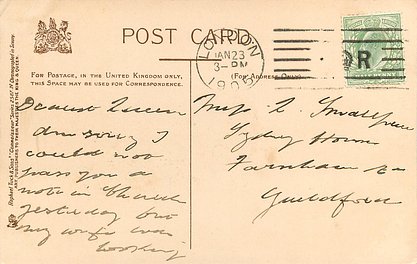 POST CARD
FOR POSTAGE, IN THE UNITED KINGDOM ONLY,
THIS SPACE MAY BE USED FOR CORRESPONDENCE.
(FOR ADDRESS ONLY)
LONDON
JAN 23
3-PM
R
ART PUBLISHERS TO THEIR MAJESTIES THE KING & QUEEN
Dearest Queen
Am sorry I
could not
pass you a
note in Church
yesterday but
my wife was
looking
Miss
Sydney House
Farnham
Guildford